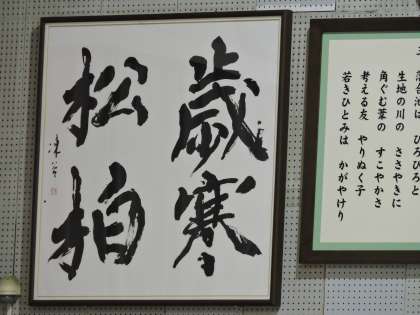 歳寒
松柏
ひろびろと
生地の川の ささやきに
角ぐむ葦の すこやかさ
考える友 やりぬく子
若きひとみは かがやけり